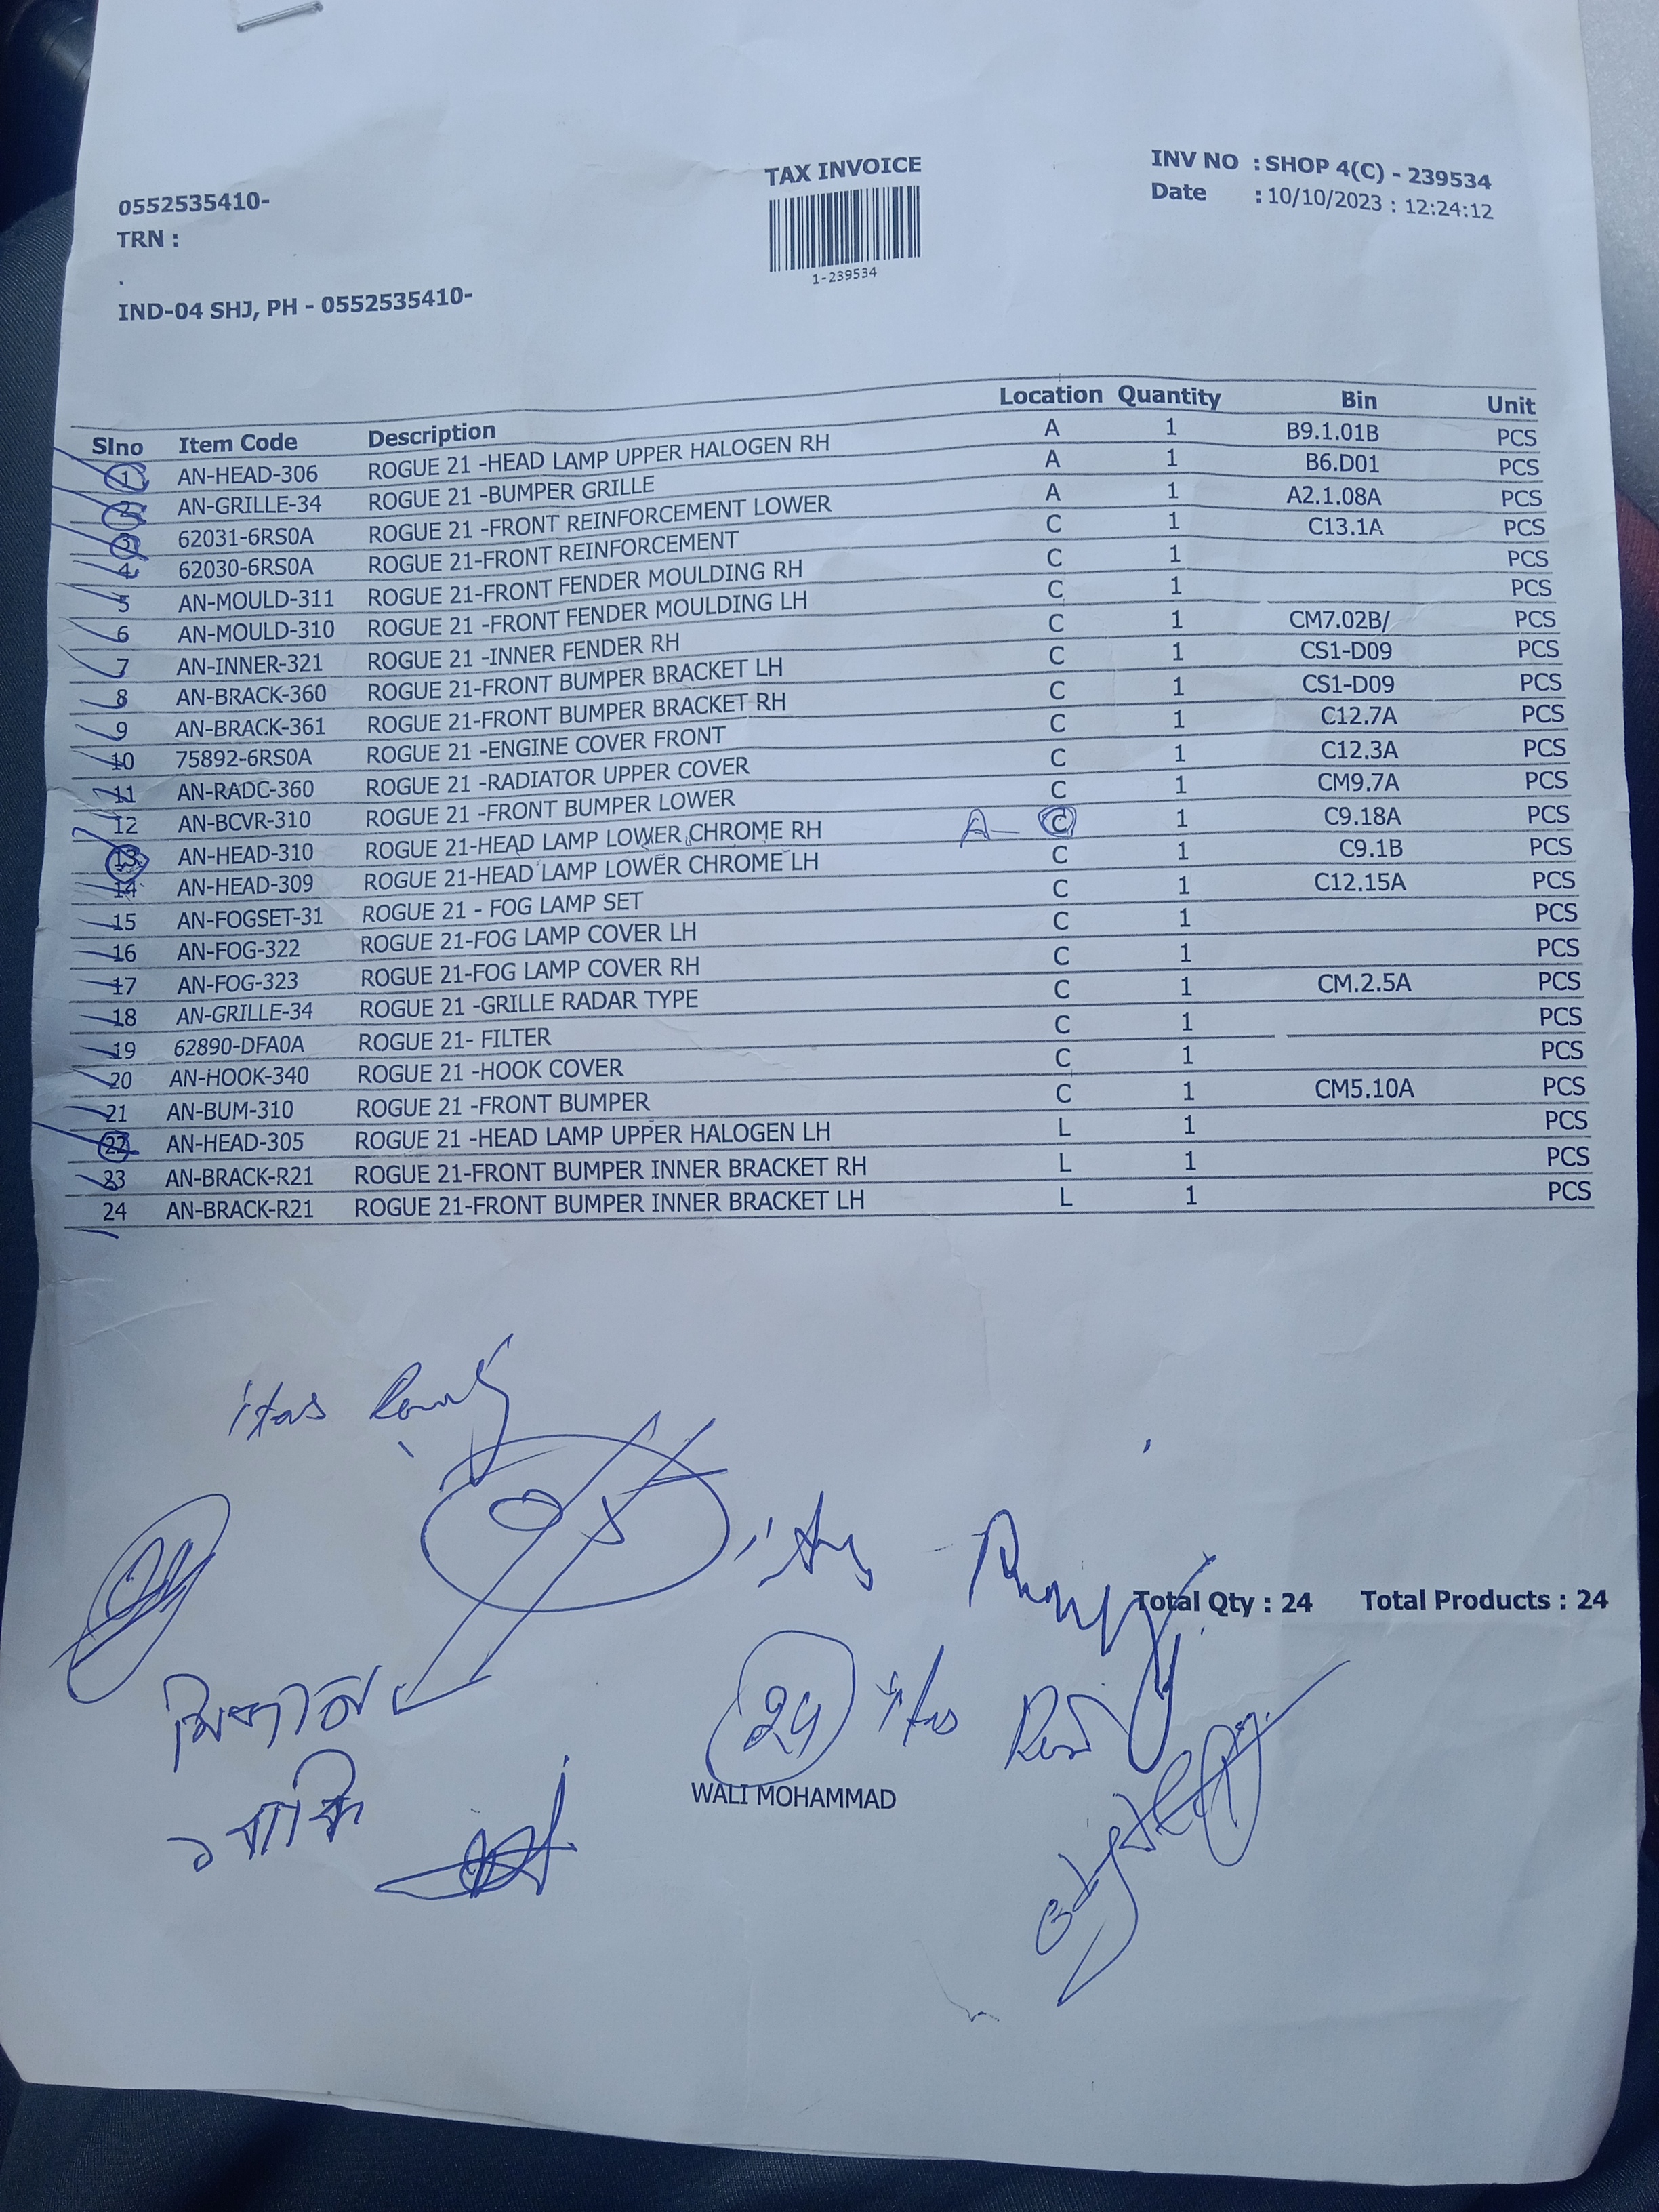 TAX INVOICE
INV NO : SHOP 4(C) - 239534
Date : 10/10/2023 : 12:24:12
0552535410-
TRN :
.
1-239534
IND-04 SHJ, PH - 0552535410-
Slno Item Code Description Location Quantity Bin Unit
1 AN-HEAD-306 ROGUE 21 -HEAD LAMP UPPER HALOGEN RH A 1 B9.1.01B PCS
2 AN-GRILLE-34 ROGUE 21 -BUMPER GRILLE A 1 B6.D01 PCS
3 62031-6RS0A ROGUE 21 -FRONT REINFORCEMENT LOWER A 1 A2.1.08A PCS
4 62030-6RS0A ROGUE 21-FRONT REINFORCEMENT C 1 C13.1A PCS
5 AN-MOULD-311 ROGUE 21-FRONT FENDER MOULDING RH C 1 PCS
6 AN-MOULD-310 ROGUE 21 -FRONT FENDER MOULDING LH C 1 PCS
7 AN-INNER-321 ROGUE 21 -INNER FENDER RH C 1 CM7.02B/ PCS
8 AN-BRACK-360 ROGUE 21-FRONT BUMPER BRACKET LH C 1 CS1-D09 PCS
9 AN-BRACK-361 ROGUE 21-FRONT BUMPER BRACKET RH C 1 CS1-D09 PCS
10 75892-6RS0A ROGUE 21 -ENGINE COVER FRONT C 1 C12.7A PCS
11 AN-RADC-360 ROGUE 21 -RADIATOR UPPER COVER C 1 C12.3A PCS
12 AN-BCVR-310 ROGUE 21 -FRONT BUMPER LOWER C 1 CM9.7A PCS
13 AN-HEAD-310 ROGUE 21-HEAD LAMP LOWER CHROME RH A- C 1 C9.18A PCS
14 AN-HEAD-309 ROGUE 21-HEAD LAMP LOWER CHROME LH C 1 C9.1B PCS
15 AN-FOGSET-31 ROGUE 21 - FOG LAMP SET C 1 C12.15A PCS
16 AN-FOG-322 ROGUE 21-FOG LAMP COVER LH C 1 PCS
17 AN-FOG-323 ROGUE 21-FOG LAMP COVER RH C 1 PCS
18 AN-GRILLE-34 ROGUE 21 -GRILLE RADAR TYPE C 1 CM.2.5A PCS
19 62890-DFA0A ROGUE 21- FILTER C 1 PCS
20 AN-HOOK-340 ROGUE 21 -HOOK COVER C 1 PCS
21 AN-BUM-310 ROGUE 21 -FRONT BUMPER C 1 CM5.10A PCS
22 AN-HEAD-305 ROGUE 21 -HEAD LAMP UPPER HALOGEN LH L 1 PCS
23 AN-BRACK-R21 ROGUE 21-FRONT BUMPER INNER BRACKET RH L 1 PCS
24 AN-BRACK-R21 ROGUE 21-FRONT BUMPER INNER BRACKET LH L 1 PCS
Total Qty : 24 Total Products : 24
24
WALI MOHAMMAD